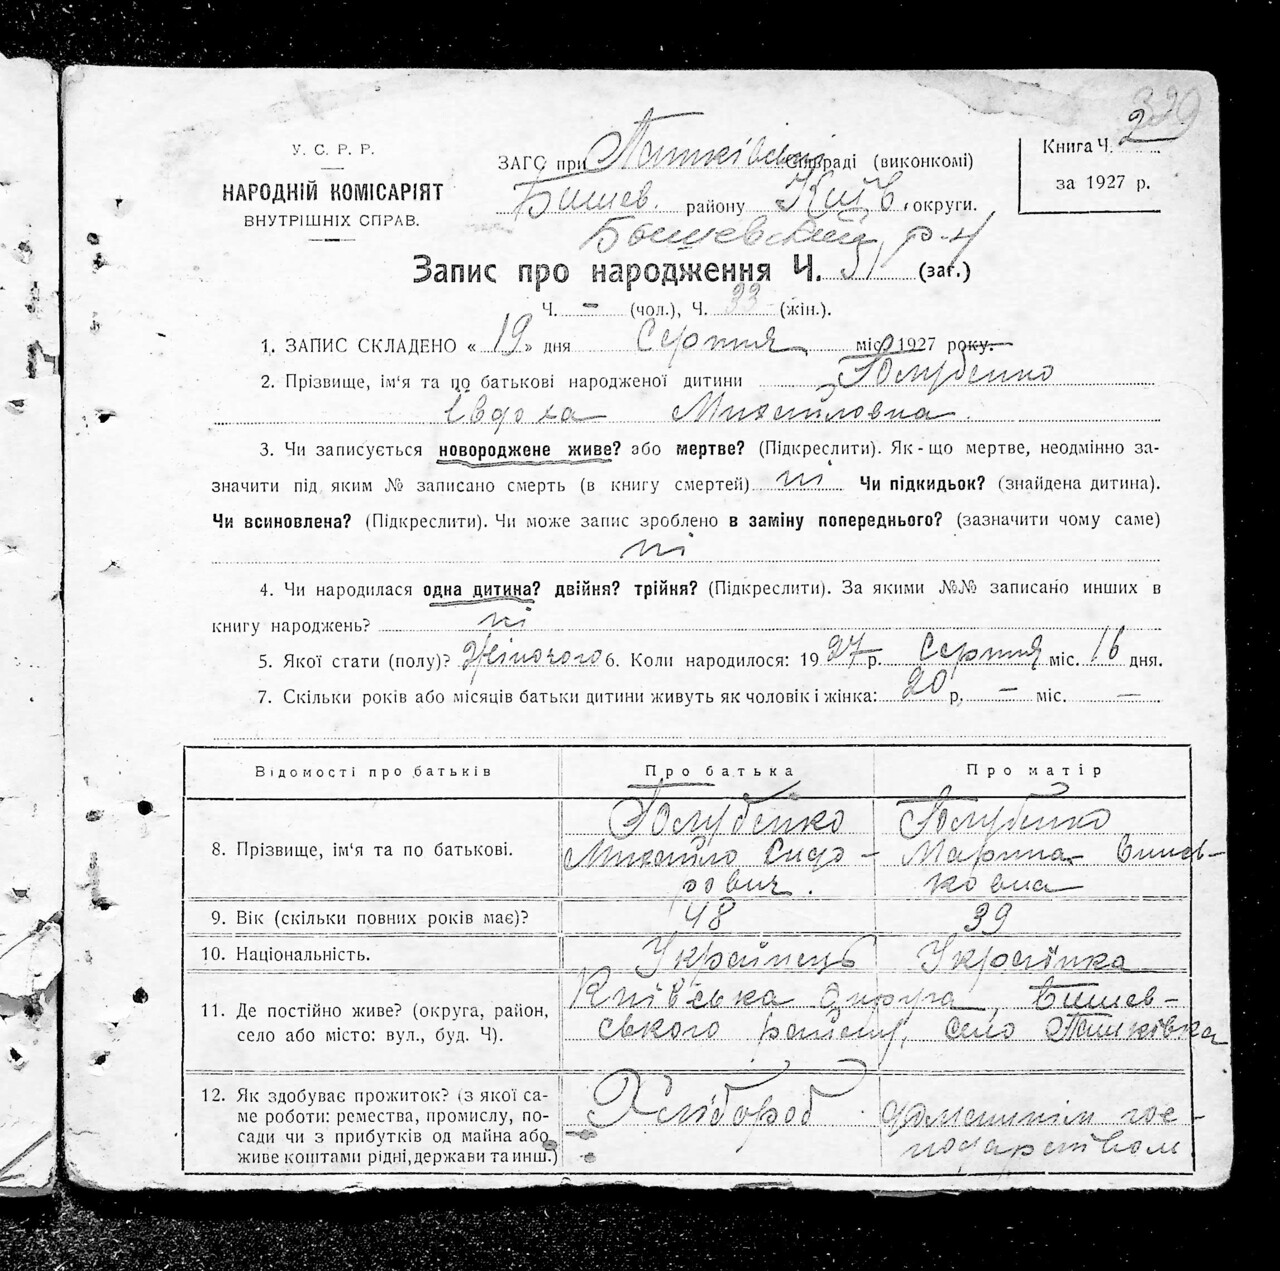 329
У. С. Р. Р.
НАРОДНІЙ КОМІСАРІЯТ
ВНУТРІШНІХ СПРАВ.
ЗАГС при Пашківській Сільраді (виконкомі)
Бишев. району Київ. округи.
Бышевский р-н
Книга Ч. 2
за 1927 р.
Запис про народження Ч. (заг.)
Ч. – (чол.), Ч. 33 (жін.).
1. ЗАПИС СКЛАДЕНО « 19 » дня Серпня міс. 1927 року.
2. Прізвище, ім'я та по батькові народженої дитини Голубенко
Євдоха Михайловна.
3. Чи записується новороджене живе? або мертве? (Підкреслити). Як-що мертве, неодмінно за-
значити під яким № записано смерть (в книгу смертей) ні Чи підкидьок? (знайдена дитина).
Чи всиновлена? (Підкреслити). Чи може запис зроблено в заміну попереднього? (зазначити чому саме)
ні
4. Чи народилася одна дитина? двійня? трійня? (Підкреслити). За якими №№ записано инших в
книгу народжень? ні
5. Якої стати (полу)? Жіночого 6. Коли народилося: 1927 р. Серпня міс. 16 дня.
7. Скільки років або місяців батьки дитини живуть як чоловік і жінка: 20 р. – міс. –
Відомості про батьків Про батька Про матір
8. Прізвище, ім'я та по батькові. Голубенко Михайло Сидо-
рович. Голубенко Марина
ковна
9. Вік (скільки повних років має)? 48 39
10. Національність. Українець Українка
11. Де постійно живе? (округа, район,
село або місто: вул., буд. Ч). Київська округа, Бишев-
ського району, село Пашківка
12. Як здобуває прожиток? (з якої са-
ме роботи: ремества, промислу, по-
сади чи з прибутків од майна або
живе коштами рідні, держави та инш.) Хлібороб. домашнім гос-
подарством